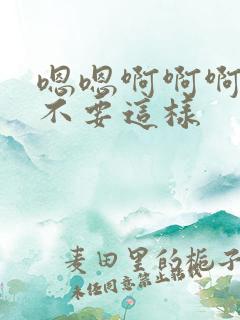 嗯嗯啊啊啊
不要這樣
麦田里的栀子
未经同意禁止转载